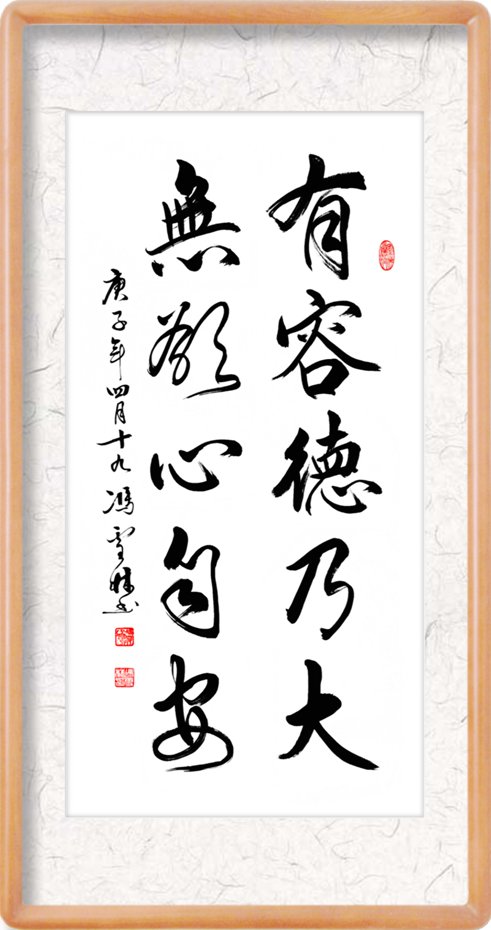 有容德乃大
無欲心自安
庚子年四月十九 馮雪林书